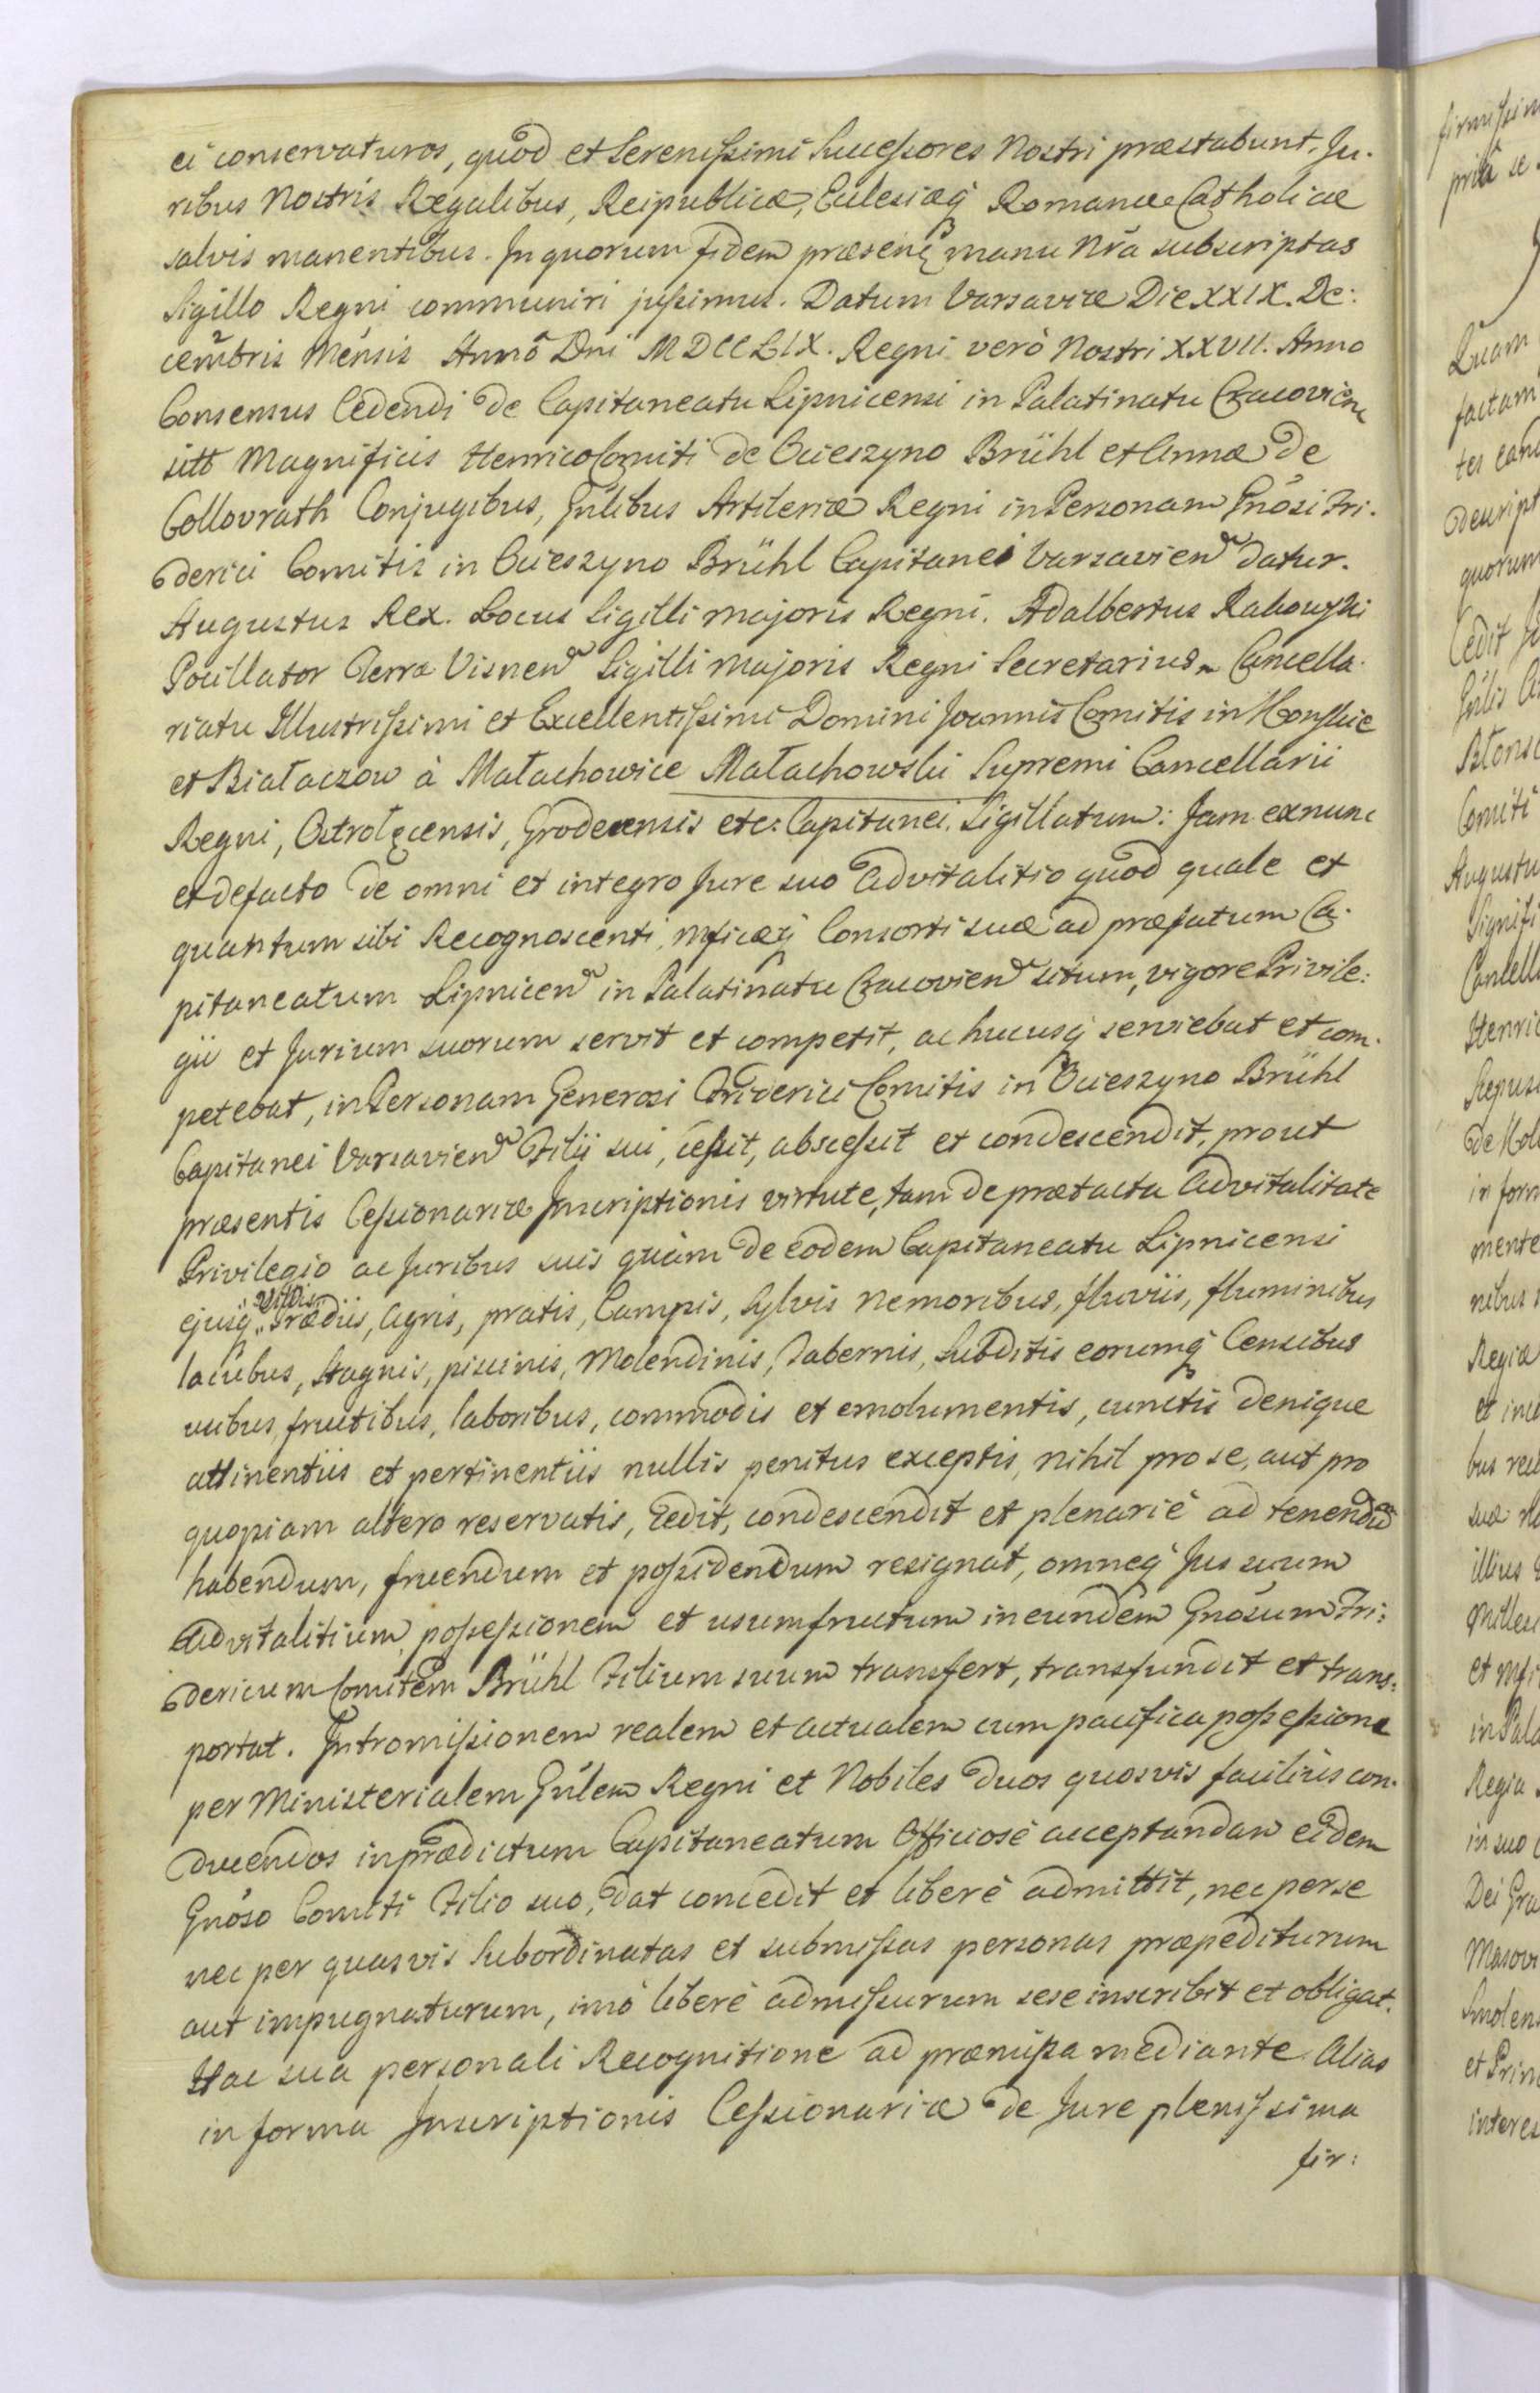 ei conservaturos, quod et Serenissimi Successores Nostri præstabunt, Ju-
ribus Nostris Regalibus, Reipublicæ, Ecclesiæq Romanæ Catholicæ
salvis manentibus. In quorum fidem præsens manu Nrã subscriptas
Sigillo Regni communiri jussimus. Datum Varsaviæ Die XXIX. De:
cembris Mensis Annō Dni MDCCLIX. Regni verò Nostri XXVII. Anno
Consensus Cedendi de Capitaneatu Lipnicensi in Palatinatu Cracovien
sitt Magnificis Henrico Comiti de Ocieszyno Brühl et Annæ de
Collovrath Conjugibus, Gńlibus Artileriæ Regni in Personam Gnósi Fri-
derici Comitis in Ocieszyno Brühl Capitanei Varsavien datur.
Augustus Rex. Locus Sigilli majoris Regni. Adalbertus Rakowski
Pocillator Terræ Visnen Sigilli Majoris Regni Secretarius. Cancella-
riatu Illustrissimi et Excellentissimi Domini Joannis Comitis in Konskie
et Białaczow à Małachowice Małachowski Supremi Cancellarii
Regni, Ostrołęcensis, Grodecensis etc: Capitanei. Sigillatum: Jam exnunc
et defacto de omni et integro Jure suo Advitalitio quod quale et
quantum sibi Recognoscenti, mficæq Consorti suæ ad præfatum Ca-
pitaneatum Lipnicen in Palatinatu Cracovien situm, vigore Privile:
gii et Jurium suorum servit et competit, ac hucusq serviebat et com-
petebat, in Personam Generosi Friderici Comitis in Ocieszyno Brühl
Capitanei Varsavien Filii sui, cessit, abscessit et condescendit, prout
præsentis Cessionariæ Inscriptionis virtute, tam de prætacta Advitalitate
Privilegio ac Juribus suis quàm de eodem Capitaneatu Lipnicensi
ejusq Prædiis, Agris, pratis, Campis, Sylvis Nemoribus, fluviis, fluminibus
lacubus, Stagnis, piscinis, Molendinis, Tabernis, Subditis eorumq Censibus
fructibus, laboribus, commodis et emolumentis, cunctis denique
attinentiis et pertinentiis nullis penitus exceptis, nihil pro se, aut pro
quopiam altero reservatis, Cedit, condescendit et plenariè ad tenendū
habendum, fruendum et possidendum resignat, omneq Jus suum
Advitalitium, possessionem et usumfructum in eundem Gnósum Fri:
dericum Comitem Brühl Filium suum transfert, transfundit et trans:
portat. Intromissionem realem et actualem cum pacifica possessione
per Ministerialem Gńlem Regni et Nobiles duos quosvis faciliùs con-
ducendos in prædictum Capitaneatum Officiosè acceptandam eidem
Gnóso Comiti Filio suo, dat concedit et liberè admittit, nec per se
nec per quasvis Subordinatas et submissas personas præpediturum
aut impugnaturum, imò liberè admissurum sese inscribit et obligat.
Hac sua personali Recognitione ad præmissa mediante Alias
in forma Inscriptionis Cessionariæ de Jure plenissima
fir: